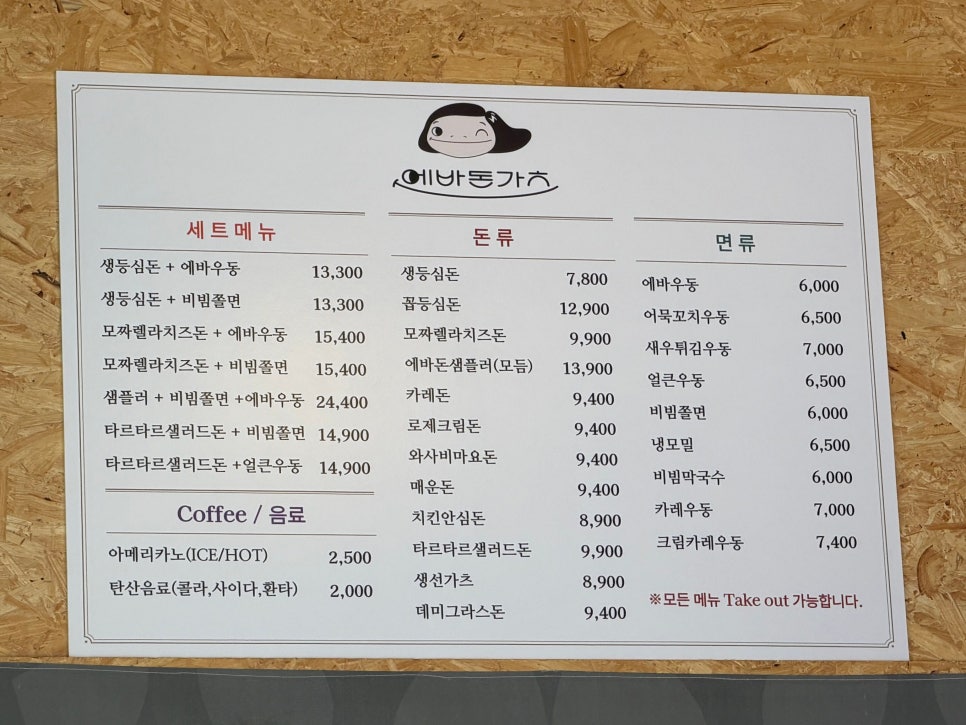 에바돈가츠
세트메뉴
생등심돈 + 에바우동 13,300
생등심돈 + 비빔쫄면 13,300
모짜렐라치즈돈 + 에바우동 15,400
모짜렐라치즈돈 + 비빔쫄면 15,400
샘플러 + 비빔쫄면 +에바우동 24,400
타르타르샐러드돈 + 비빔쫄면 14,900
타르타르샐러드돈 +얼큰우동 14,900
Coffee / 음료
아메리카노(ICE/HOT) 2,500
탄산음료(콜라,사이다,환타) 2,000
돈류
생등심돈 7,800
꼽등심돈 12,900
모짜렐라치즈돈 9,900
에바돈샘플러(모듬) 13,900
카레돈 9,400
로제크림돈 9,400
와사비마요돈 9,400
매운돈 9,400
치킨안심돈 8,900
타르타르샐러드돈 9,900
생선가츠 8,900
데미그라스돈 9,400
면류
에바우동 6,000
어묵꼬치우동 6,500
새우튀김우동 7,000
얼큰우동 6,500
비빔쫄면 6,000
냉모밀 6,500
비빔막국수 6,000
카레우동 7,000
크림카레우동 7,400
※모든 메뉴 Take out 가능합니다.